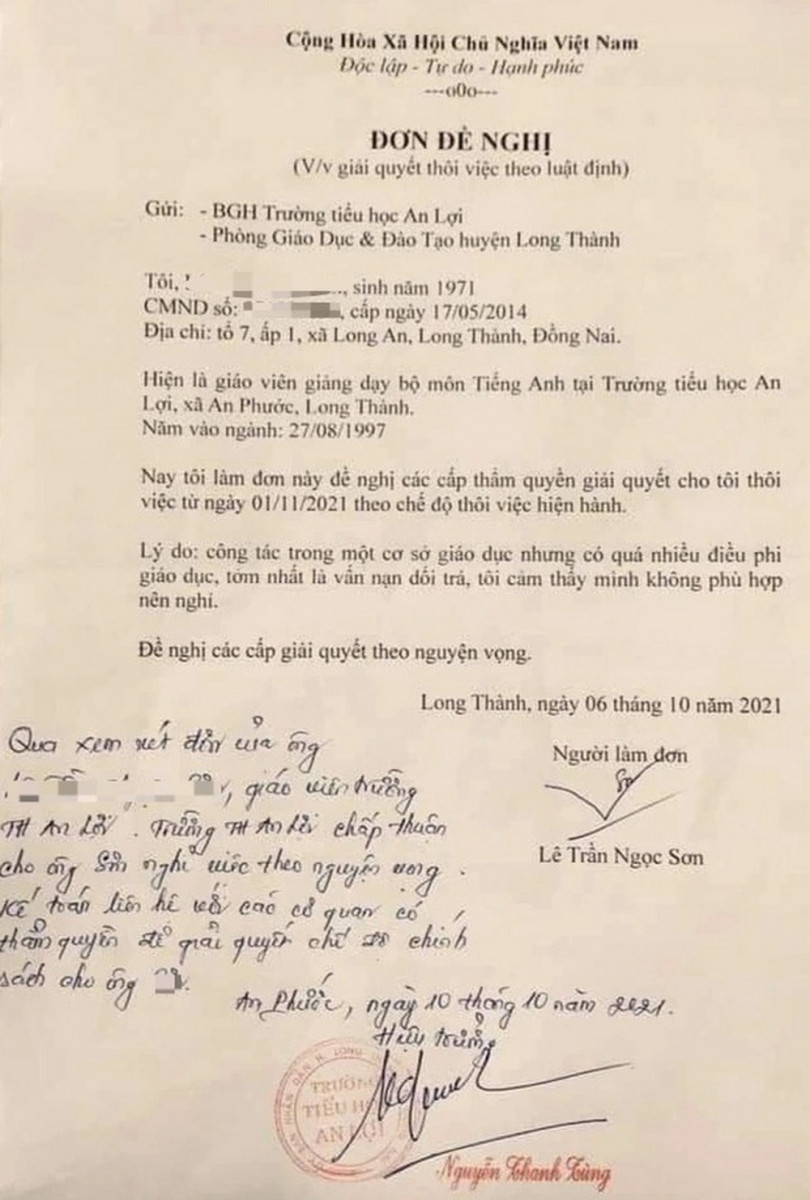 Cộng Hòa Xã Hội Chủ Nghĩa Việt Nam
Độc lập - Tự do - Hạnh phúc
---o0o---
ĐƠN ĐỀ NGHỊ
(V/v giải quyết thôi việc theo luật định)
Gửi: - BGH Trường tiểu học An Lợi
- Phòng Giáo Dục & Đào Tạo huyện Long Thành
Tôi, , sinh năm 1971
CMND số: , cấp ngày 17/05/2014
Địa chỉ: tổ 7, ấp 1, xã Long An, Long Thành, Đồng Nai.
Hiện là giáo viên giảng dạy bộ môn Tiếng Anh tại Trường tiểu học An
Lợi, xã An Phước, Long Thành.
Năm vào ngành: 27/08/1997
Nay tôi làm đơn này đề nghị các cấp thẩm quyền giải quyết cho tôi thôi
việc từ ngày 01/11/2021 theo chế độ thôi việc hiện hành.
Lý do: công tác trong một cơ sở giáo dục nhưng có quá nhiều điều phi
giáo dục, tởm nhất là vấn nạn dối trá, tôi cảm thấy mình không phù hợp
nên nghỉ.
Đề nghị các cấp giải quyết theo nguyện vọng.
Long Thành, ngày 06 tháng 10 năm 2021
Người làm đơn
Lê Trần Ngọc Sơn
Qua xem xét đơn của ông
, giáo viên trường
TH An Lợi. Trường TH An Lợi chấp thuận
cho ông Sơn nghỉ việc theo nguyện vọng.
Kế toán liên hệ với các cơ quan có
thẩm quyền để giải quyết chế độ chính
sách cho ông .
An Phước, ngày 10 tháng 10 năm 2021.
Hiệu trưởng
TRƯỜNG
TIỂU HỌC
AN LỢI
Nguyễn Thanh Tùng